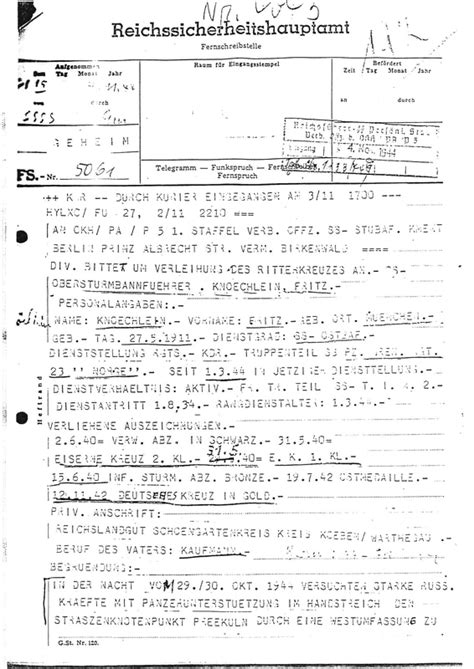 Reichssicherheitshauptamt
Fernschreibstelle
Aufgenommen
Tag Monat Jahr
durch
Raum für Eingangsstempel
Befördert
Zeit Tag Monat Jahr
an durch
4. Nov. 1944
GEHEIM
FS.-Nr. 5061
Telegramm — Funkspruch — Fernschreiben
Fernspruch
DURCH KURIER EINGEGANGEN AM 3/11 1700 ---
27, 2/11 2210 ===
AN OKH/ PA / P 5 1. STAFFEL VERB. OFFZ. SS- STUBAF.
BERLIN PRINZ ALBRECHT STR. VERM. BIRKENWALD =
DIV. BITTET UM VERLEIHUNG DES RITTERKREUZES AN.- SS-
OBERSTURMBANNFUEHRER . KNOECHLEIN, FRITZ.-
PERSONALANGABEN:-
NAME: KNOECHLEIN.- VORNAME: FRITZ.- GEB. ORT. MUENCHEN.-
GEB.- TAG. 27.5.1911.- DIENSTGRAD: SS- OSTBAF.-
DIENSTSTELLUNG RGTS.- KDR.- TRUPPENTEIL SS PZ. GREN. RGT.
23 '' NORGE''.- SEIT 1.3.44 IN JETZIGER DIENSTTELLUNG.-
DIENSTVERHAELTNIS: AKTIV.- FR. TR. TEIL SS- T. I. 4. 2.-
DIENSTANTRITT 1.8.34.- RANGDIENSTALTER: 1.3.44.-
VERLIEHENE AUSZEICHNUNGEN.-
2.6.40= VERW. ABZ. IN SCHWARZ.- 31.5.40=
EISERNE KREUZ 2. KL.- 31.5.40= E. K. 1. KL.-
15.6.40 INF. STURM. ABZ. BRONZE.- 19.7.42 OSTMEDAILLE.-
12.11.42 DEUTSCHES KREUZ IN GOLD.-
PRIV. ANSCHRIFT:-
REICHSLANDGUT SCHOENGARTENKREIS KREIS KOEBEN/ WARTHEGAU.-
BERUF DES VATERS: KAUFMANN.-
BEGRUENDUNG:-
IN DER NACHT VOM 29./30. OKT. 1944 VERSUCHTEN STARKE RUSS.
KRAEFTE MIT PANZERUNTERSTUETZUNG IM HANDSTREICH DEN
STRASZENKNOTENPUNKT PREEKULN DURCH EINE WESTUMFASSUNG ZU
Heftrand
G.St. Nr. 120.